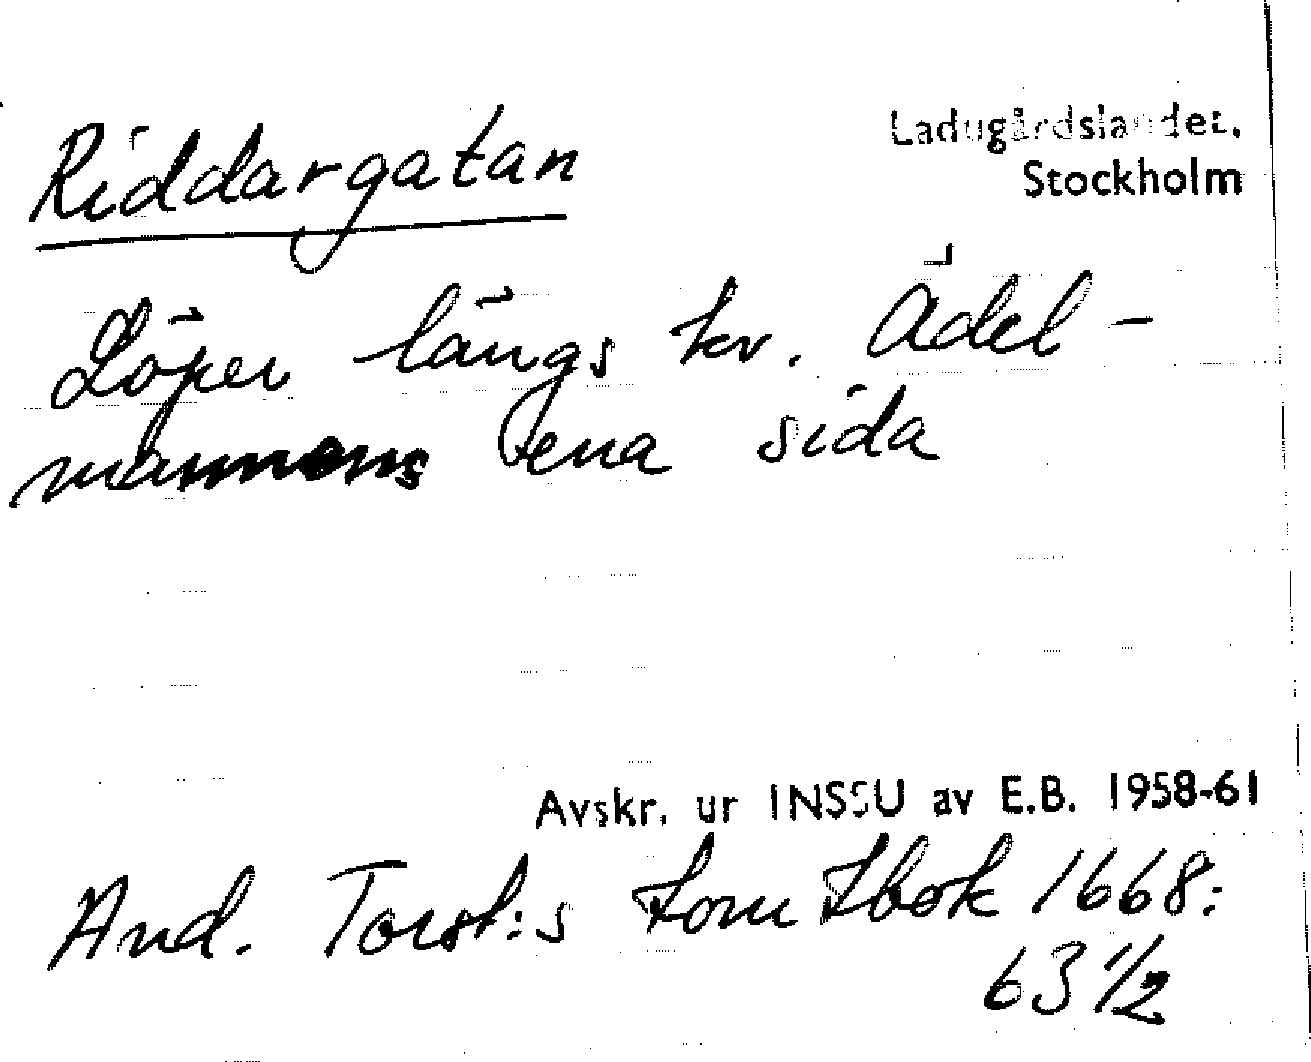 Riddargatan
Ladugårdslandet.
Stockholm
Löper längs kv. Ädel-
mannens ena sida
Avskr. ur INSSU av E.B. 1958-61
And. Torst:s tomtbok 1668:
63 1/2